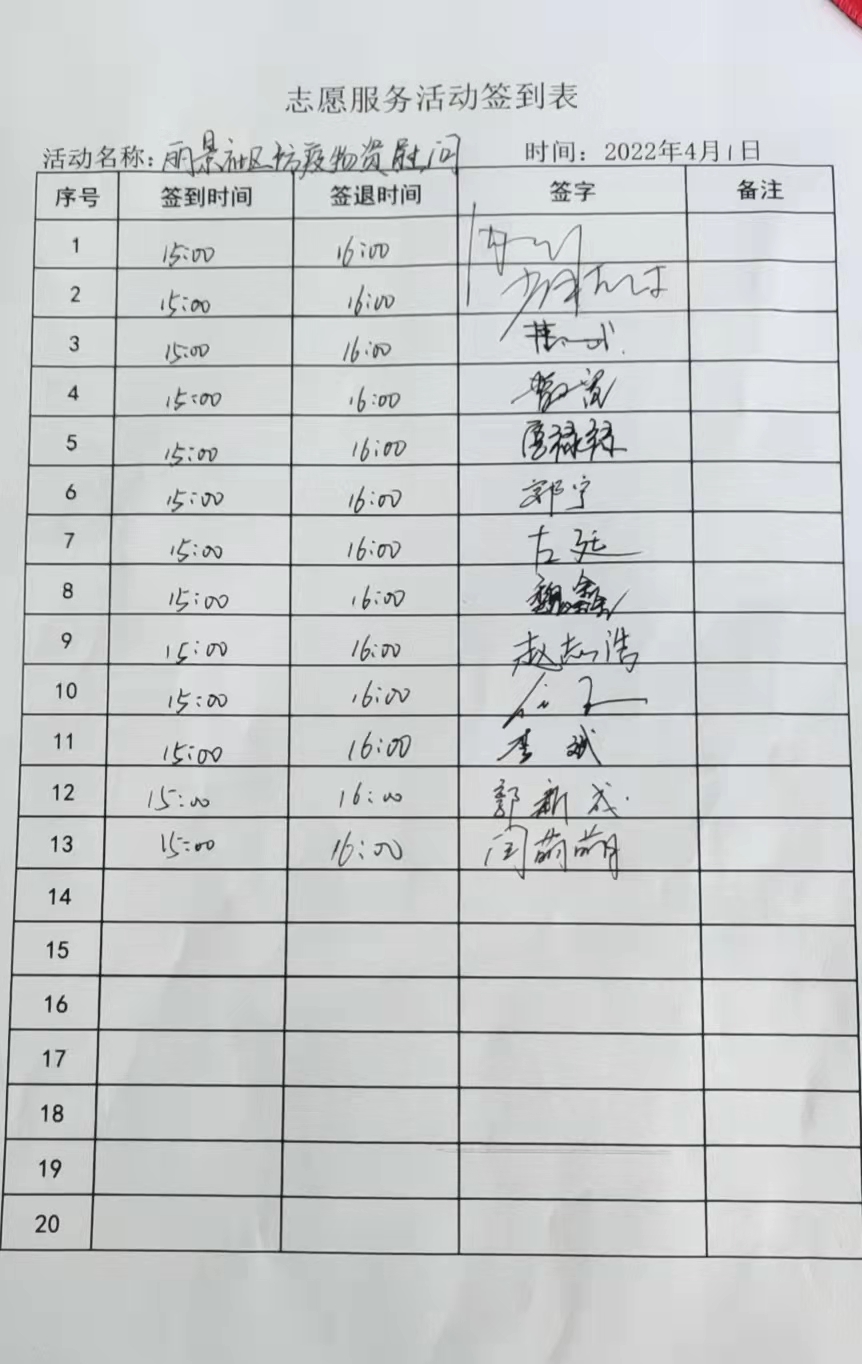 志愿服务活动签到表
活动名称：丽景社区防疫物资慰问 时间：2022年4月1日
序号 签到时间 签退时间 签字 备注
1 15:00 16:00
2 15:00 16:00
3 15:00 16:00
4 15:00 16:00
5 15:00 16:00
6 15:00 16:00 郭宁
7 15:00 16:00
8 15:00 16:00 魏鑫
9 15:00 16:00 赵志浩
10 15:00 16:00
11 15:00 16:00 李斌
12 15:00 16:00 郭新成
13 15:00 16:00 闫萌萌
14
15
16
17
18
19
20